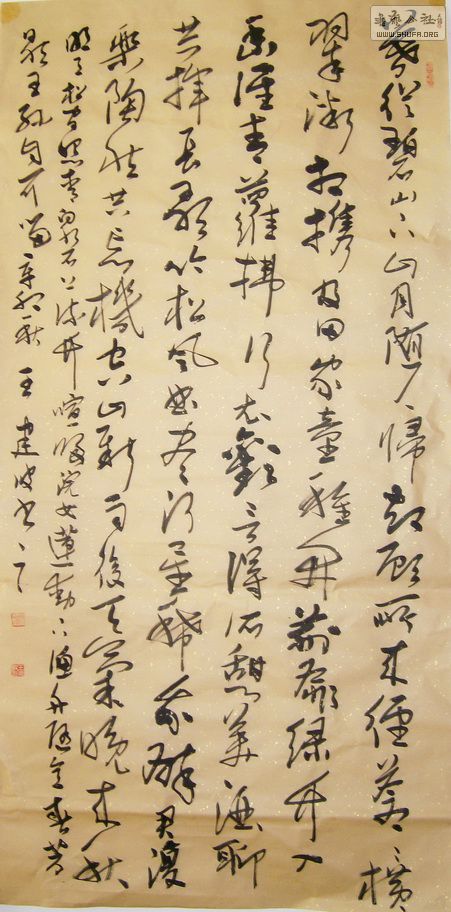 暮從碧山下山月隨人歸卻顧所來徑蒼々橫
翠微相攜及田家童稚開荊扉綠竹入
幽徑青蘿拂行衣歡言得所憩美酒聊
共揮長歌吟松風曲盡河星稀我醉君復
樂陶然共忘機空山新雨後天氣晚來秋
明月松間照清泉石上流竹喧歸浣女蓮動下漁舟隨意春芳
歇王孫自可留辛卯秋王建波書
書藝公社
WWW.SHUFA.ORG